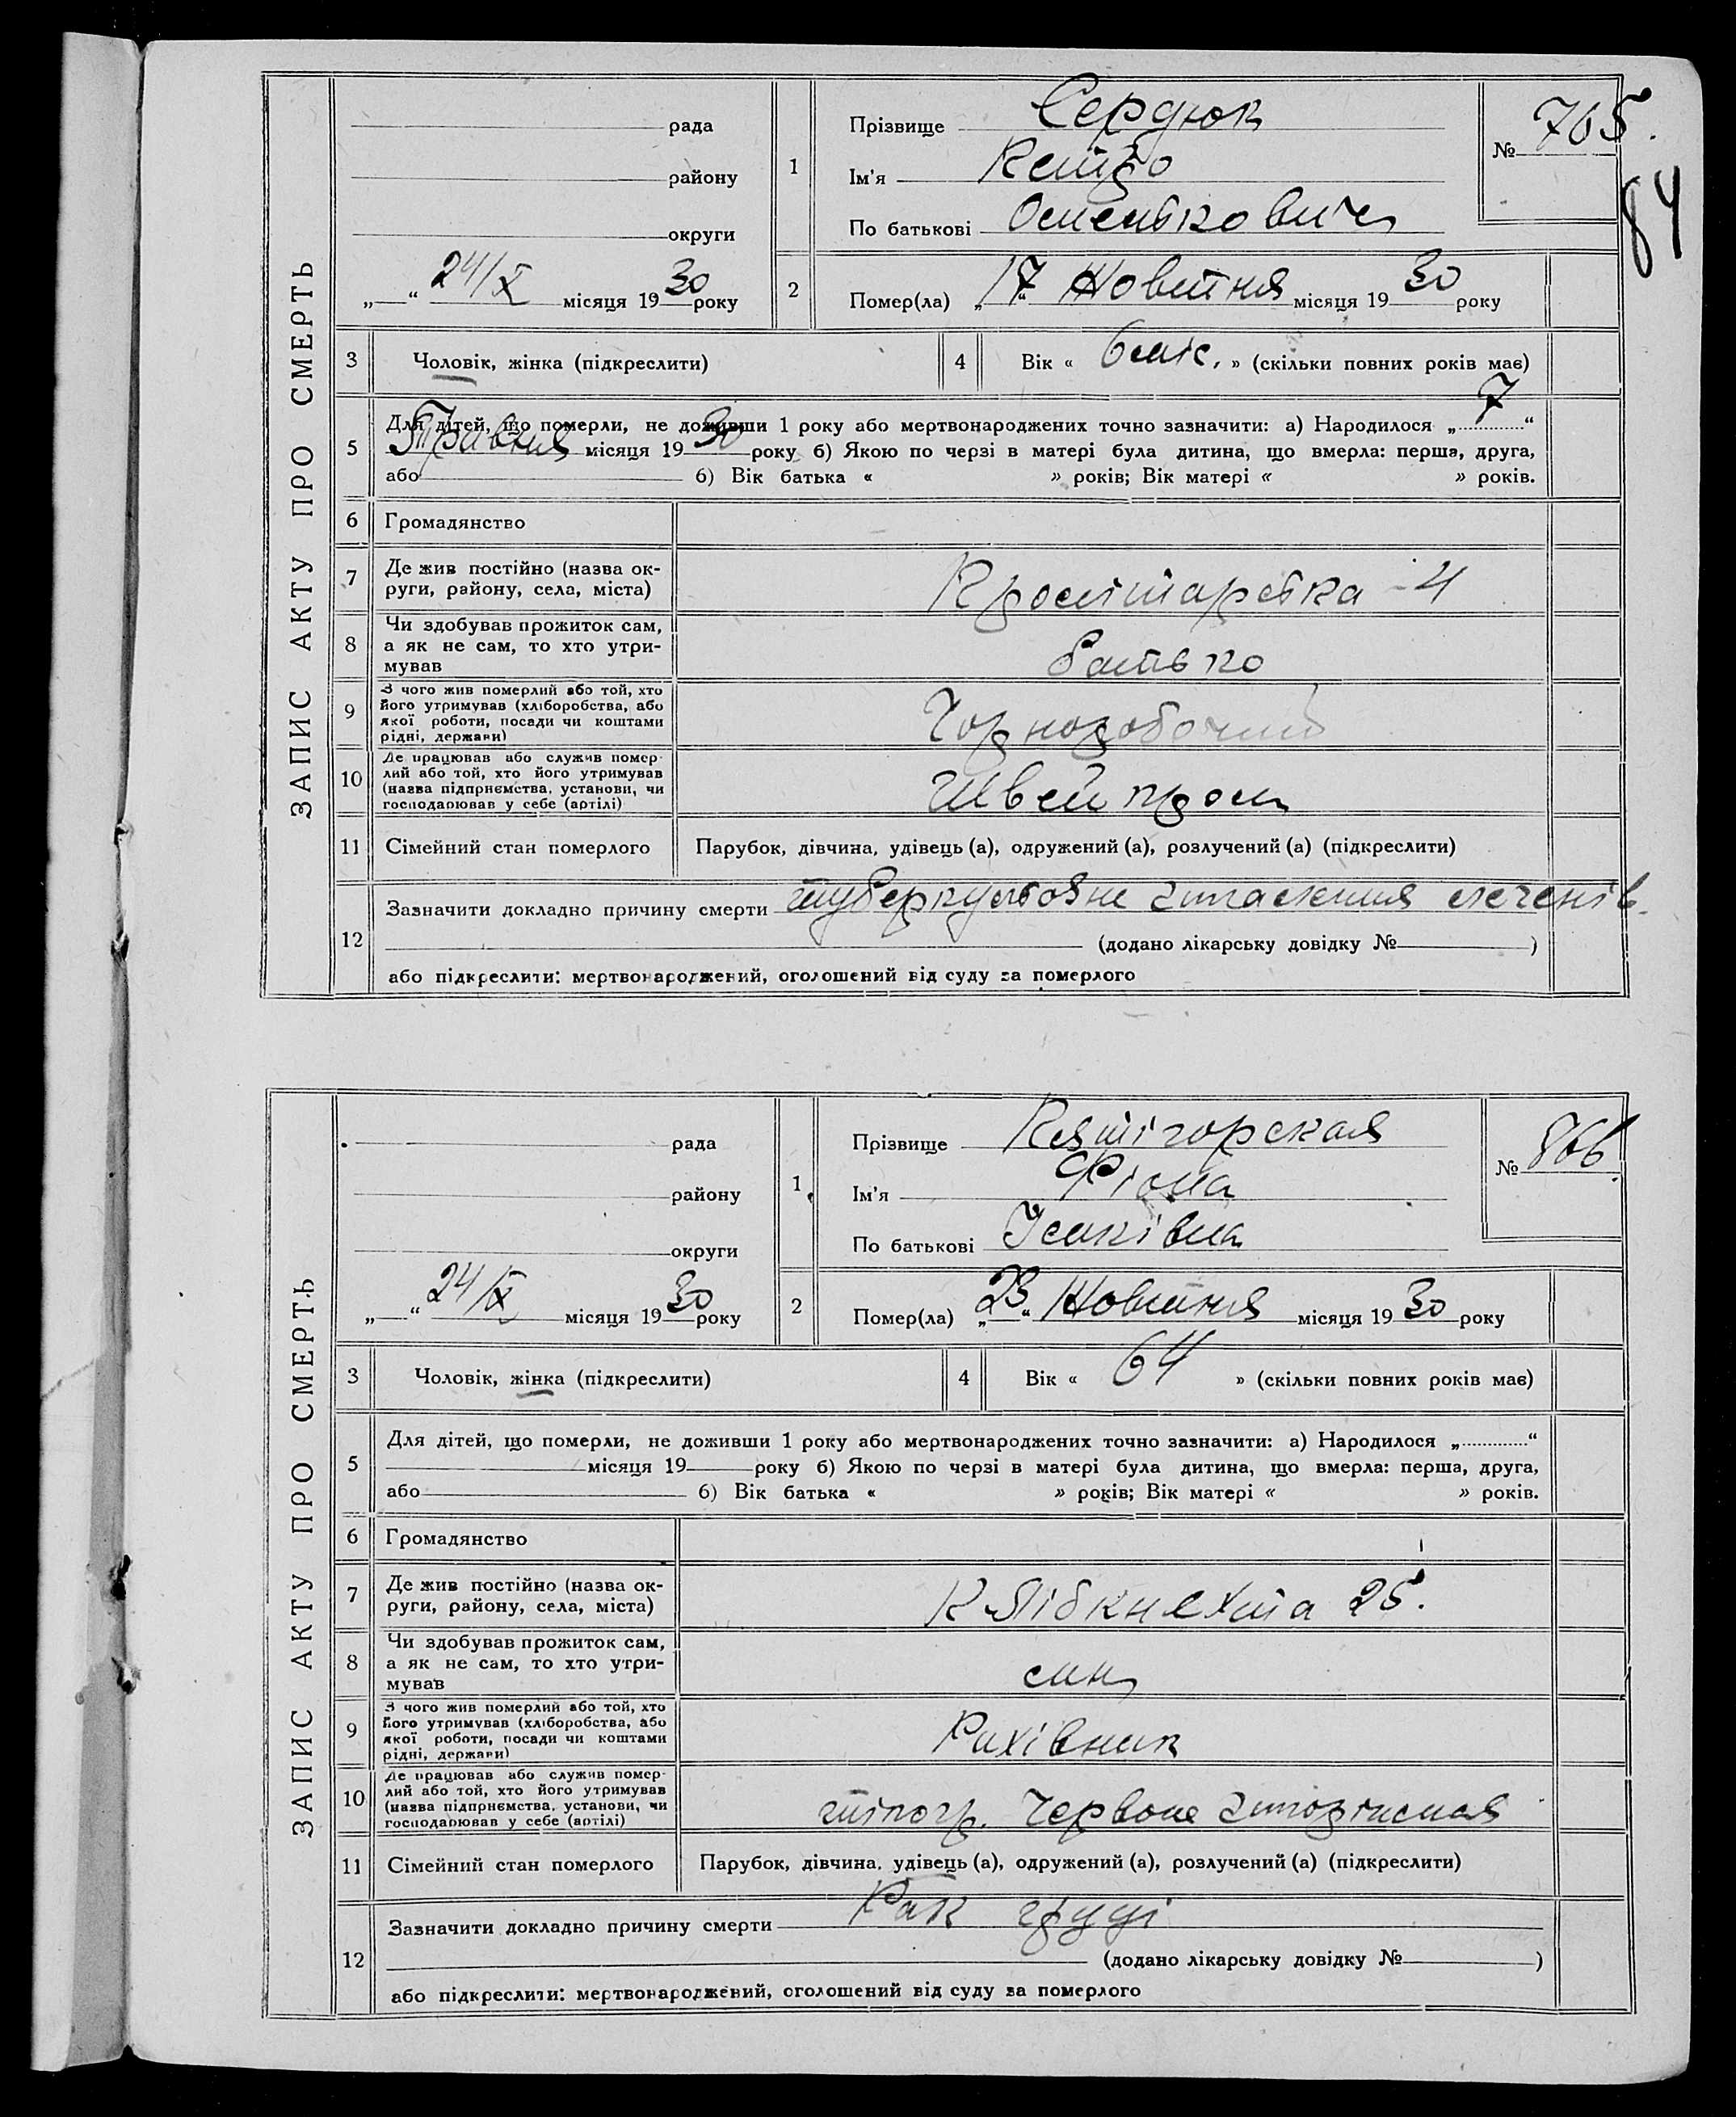 84
ЗАПИС АКТУ ПРО СМЕРТЬ
рада
району
округи
„ “ 24/X місяця 1930 року
1
Прізвище Сердюк
Ім'я
По батькові
№ 765.
2
Помер(ла) „17“ Жовтня місяця 1930 року
3
Чоловік, жінка (підкреслити)
4
Вік « 6 міс. » (скільки повних років має)
5
Для дітей, що померли, не доживши 1 року або мертвонароджених точно зазначити: а) Народилося „7“
Травня місяця 1930 року б) Якою по черзі в матері була дитина, що вмерла: перша, друга,
або б) Вік батька « » років; Вік матері « » років.
6
Громадянство
7
Де жив постійно (назва ок-
руги, району, села, міста)
Пролітарська 4
8
Чи здобував прожиток сам,
а як не сам, то хто утри-
мував
батько
9
З чого жив померлий або той, хто
його утримував (хліборобства, або
якої роботи, посади чи коштами
рідні, держави)
Чорноробочий
10
Де працював або служив помер-
лий або той, хто його утримував
(назва підприємства, установи, чи
господарював у себе (артілі)
Швейпром
11
Сімейний стан померлого
Парубок, дівчина, удівець (а), одружений (а), розлучений (а) (підкреслити)
12
Зазначити докладно причину смерти туберкульозне запалення легенів.
(додано лікарську довідку № )
або підкреслити: мертвонароджений, оголошений від суду за померлого
ЗАПИС АКТУ ПРО СМЕРТЬ
рада
району
округи
„ “ 24/X місяця 1930 року
1
Прізвище
Ім'я
По батькові
№ 866
2
Помер(ла) „23“ Жовтня місяця 1930 року
3
Чоловік, жінка (підкреслити)
4
Вік « 64 » (скільки повних років має)
5
Для дітей, що померли, не доживши 1 року або мертвонароджених точно зазначити: а) Народилося „ “
місяця 19 року б) Якою по черзі в матері була дитина, що вмерла: перша, друга,
або б) Вік батька « » років; Вік матері « » років.
6
Громадянство
7
Де жив постійно (назва ок-
руги, району, села, міста)
К Лібкнехта 25.
8
Чи здобував прожиток сам,
а як не сам, то хто утри-
мував
син
9
З чого жив померлий або той, хто
його утримував (хліборобства, або
якої роботи, посади чи коштами
рідні, держави)
Рахівник
10
Де працював або служив помер-
лий або той, хто його утримував
(назва підприємства, установи, чи
господарював у себе (артілі)
Червоне
11
Сімейний стан померлого
Парубок, дівчина, удівець (а), одружений (а), розлучений (а) (підкреслити)
12
Зазначити докладно причину смерти Рак груді
(додано лікарську довідку № )
або підкреслити: мертвонароджений, оголошений від суду за померлого